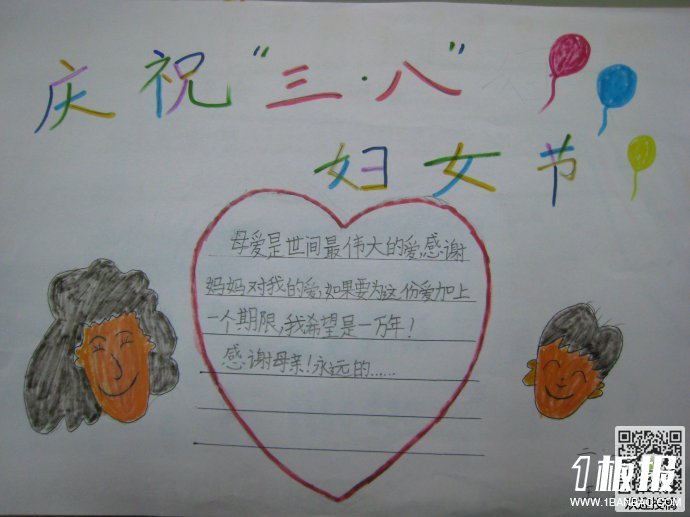 庆祝“三·八”
妇女节
母爱是世间最伟大的爱,感谢
妈妈对我的爱,如果要为这份爱加上
一个期限,我希望是一万年!
感谢母亲!永远的……
二
1板报
WWW.1BANBAO.COM
欢迎投稿